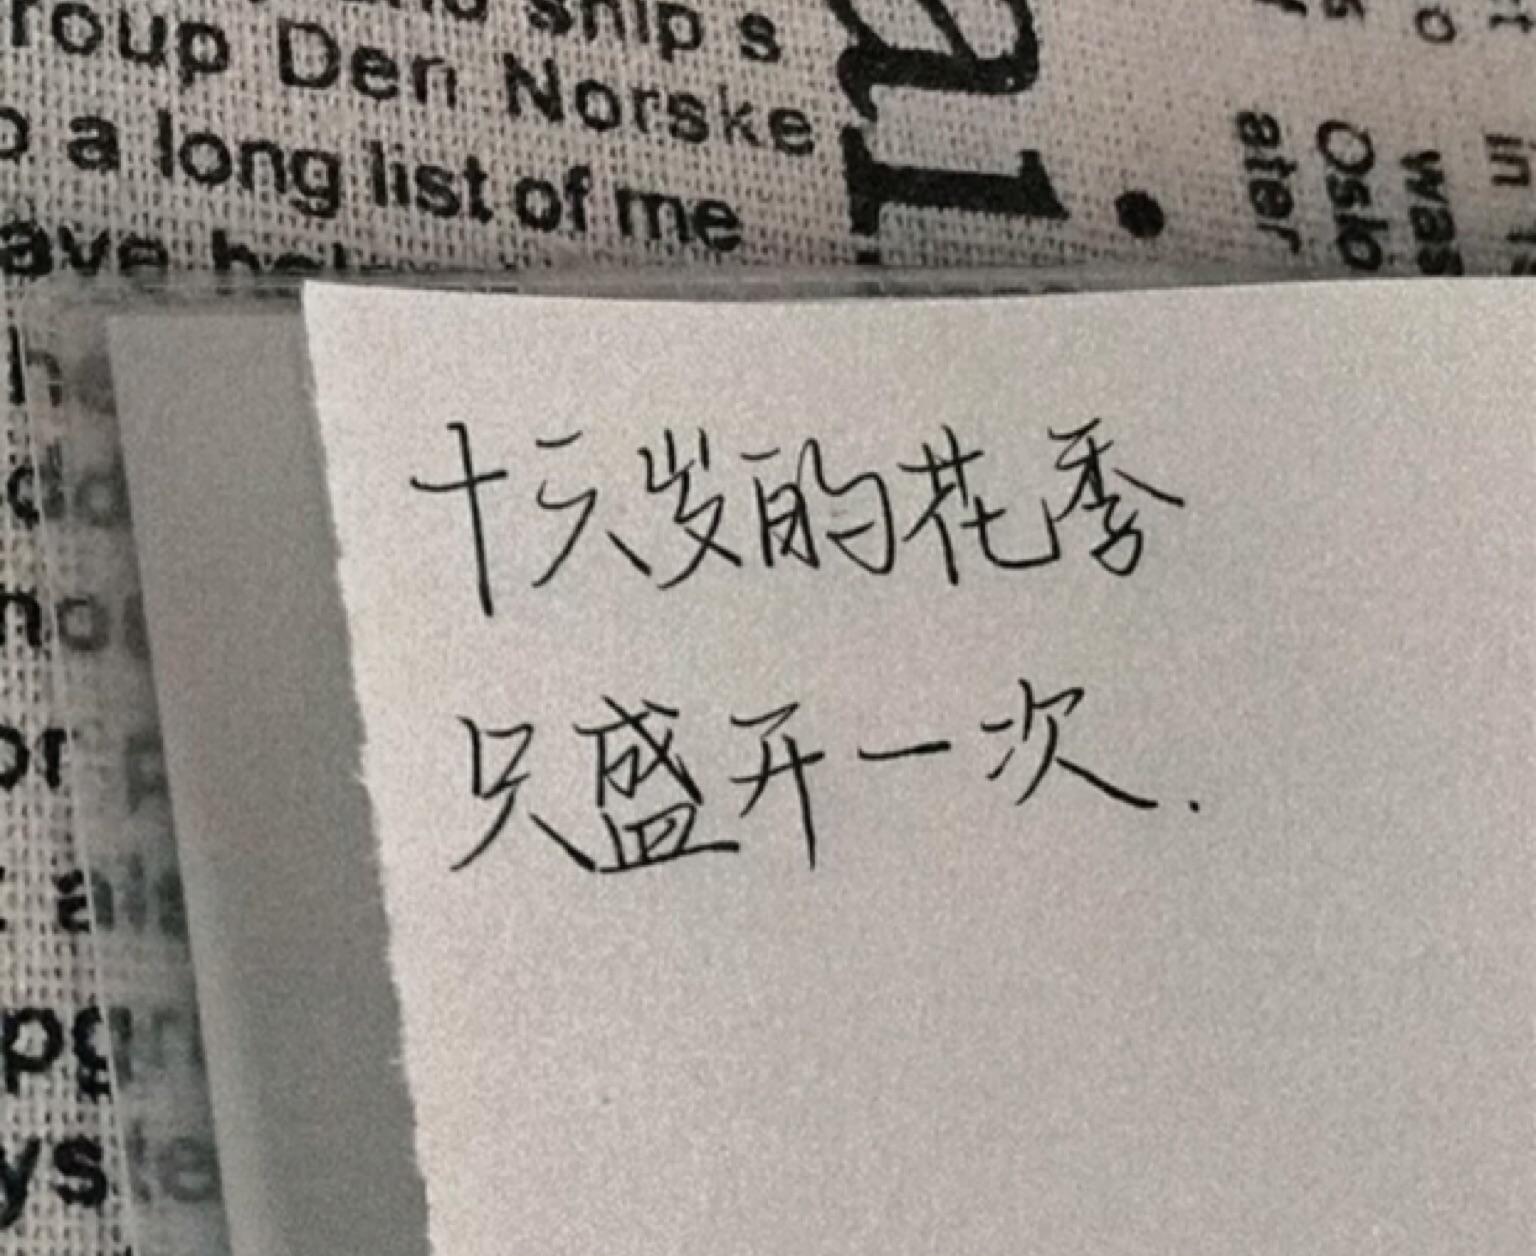 ship s
roup Den Norske
a long list of me
ater
Oslo
was
in
十六岁的花季
只盛开一次.
or
ys